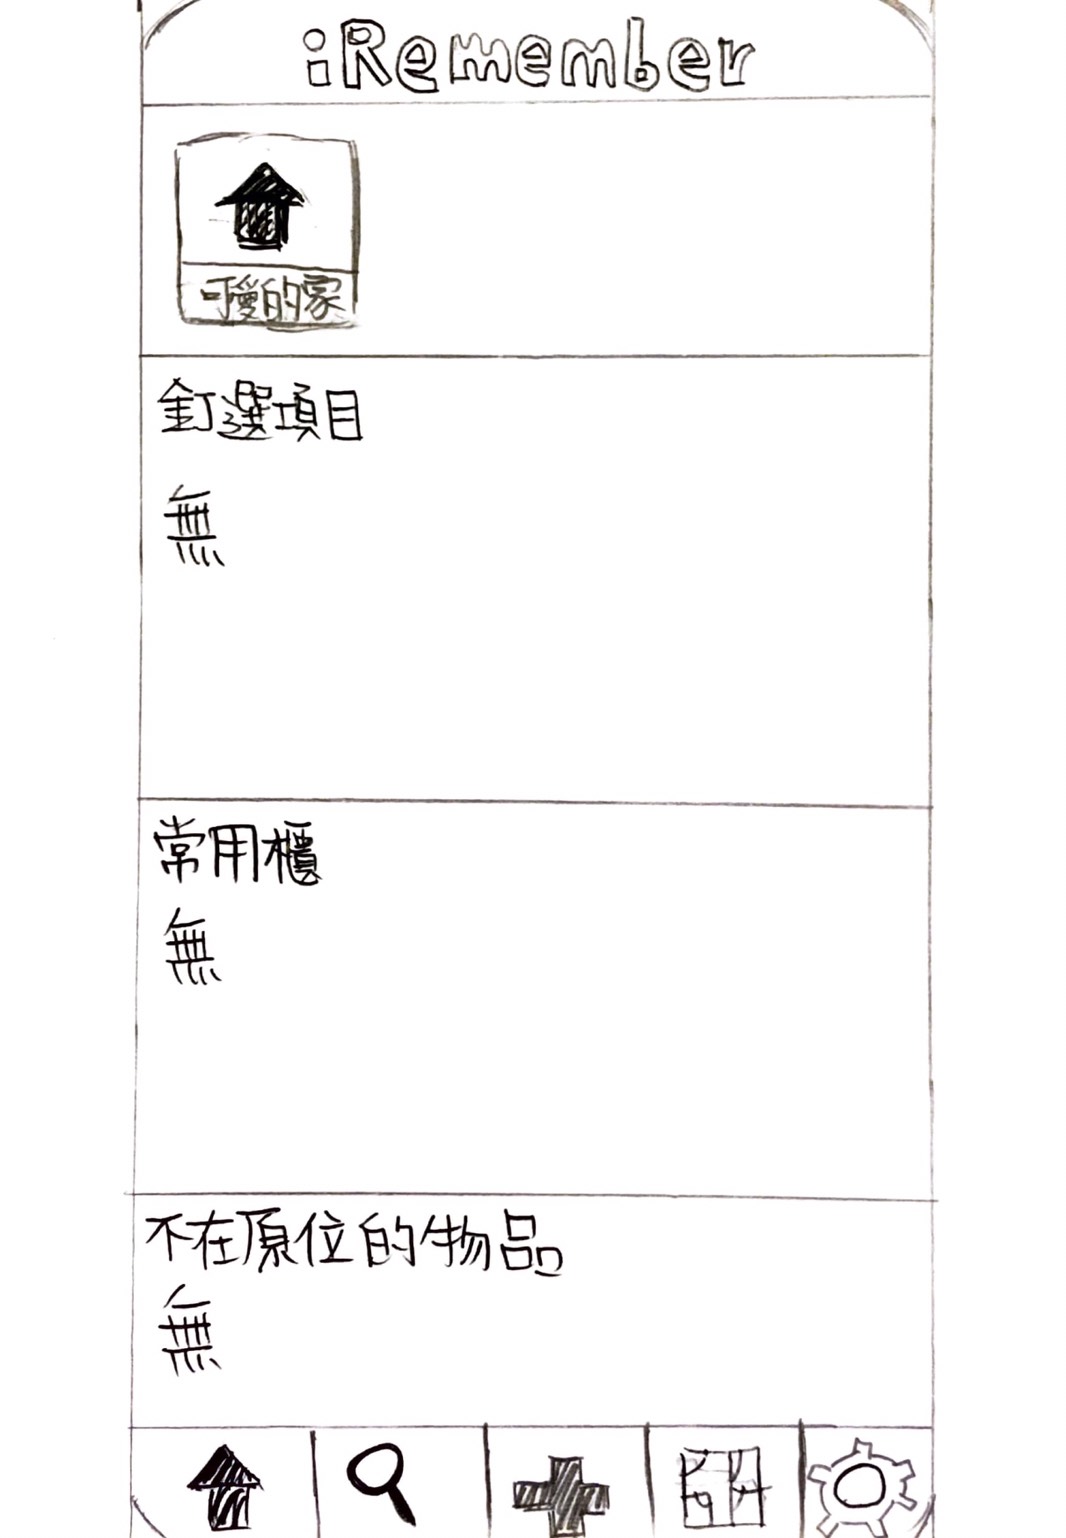 iRemember
可愛的家
釘選項目
無
常用櫃
無
不在原位的物品
無